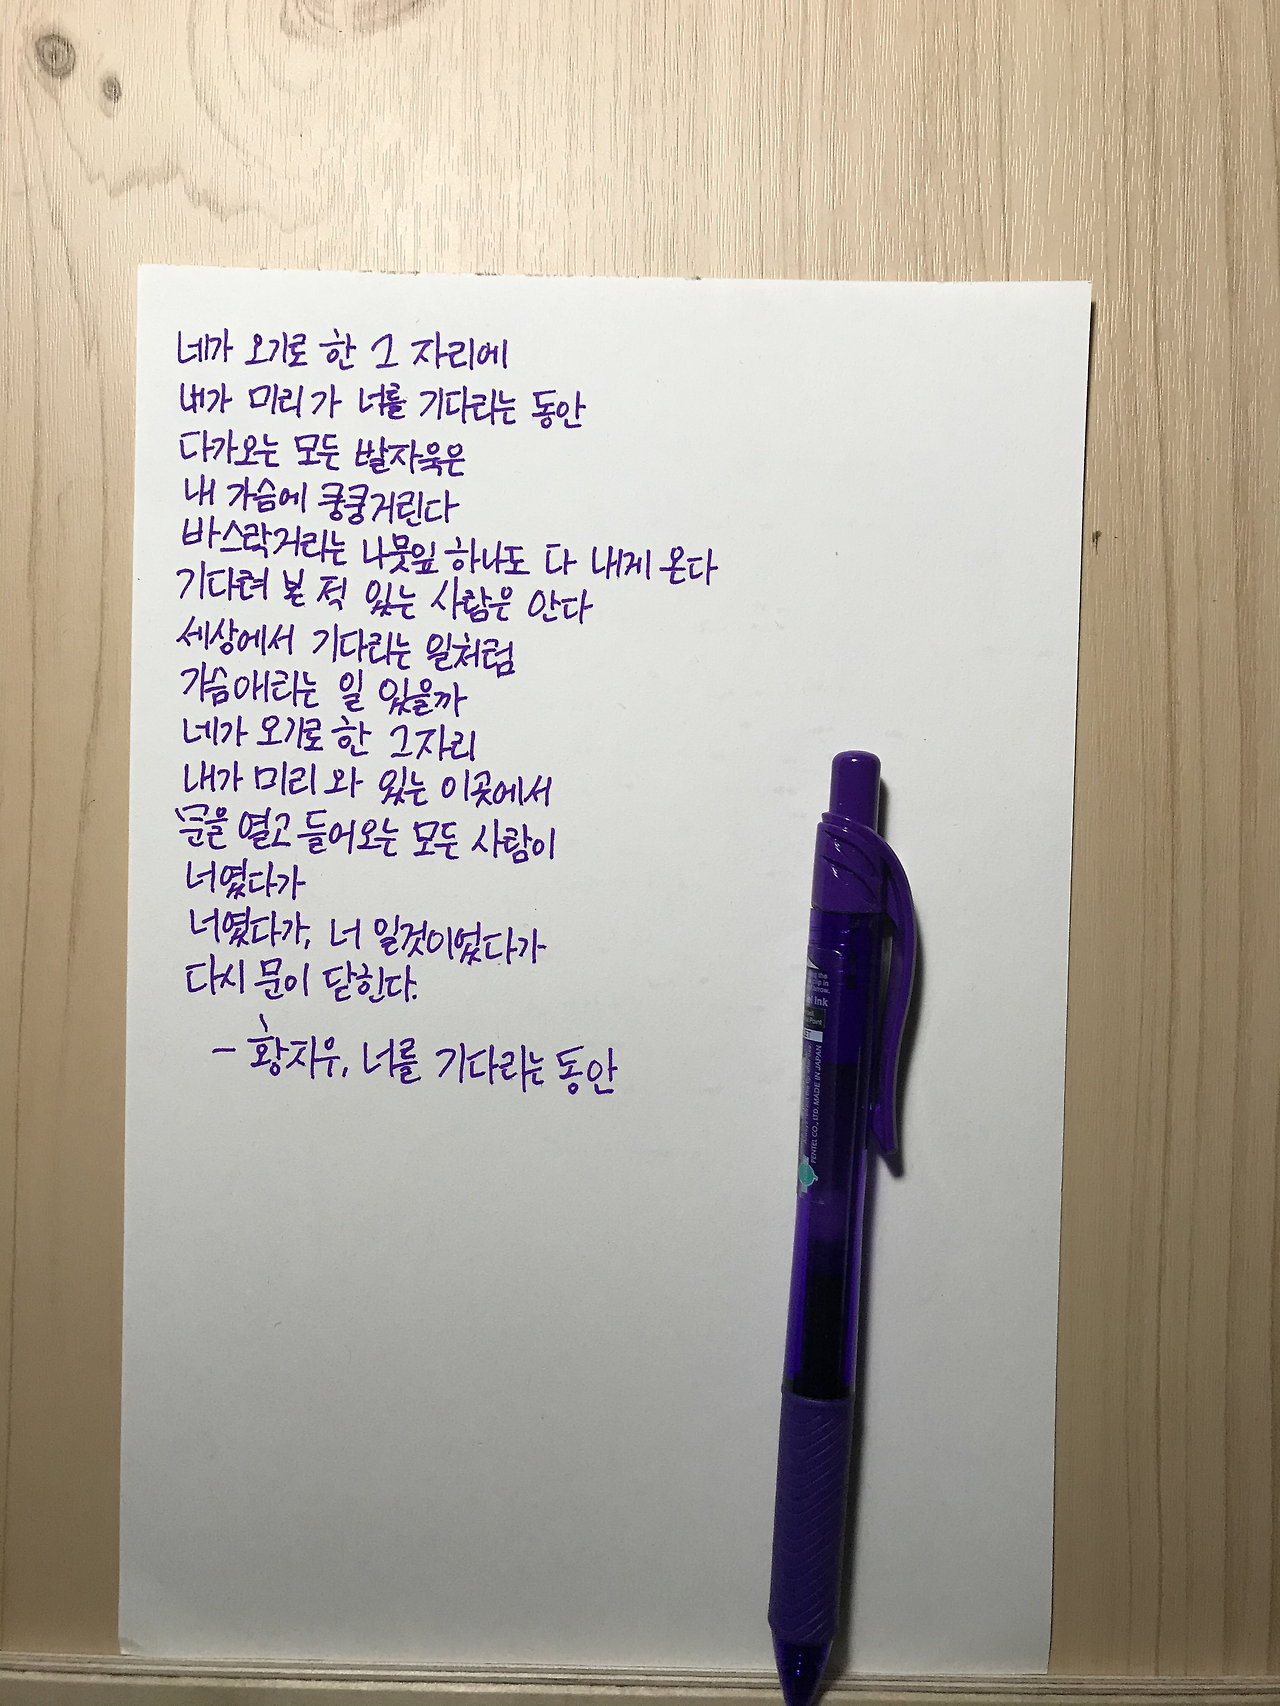 네가 오기로 한 그 자리에
내가 미리 가 너를 기다리는 동안
다가오는 모든 발자욱은
내 가슴에 쿵쿵거린다
바스락거리는 나뭇잎 하나도 다 내게 온다
기다려 본 적 있는 사람은 안다
세상에서 기다리는 일처럼
가슴애리는 일 있을까
네가 오기로 한 그자리
내가 미리 와 있는 이곳에서
문을 열고 들어오는 모든 사람이
너였다가
너였다가, 너 일것이었다가
다시 문이 닫힌다.
- 황지우, 너를 기다리는 동안
Ink
PENTEL CO., LTD. MADE IN JAPAN